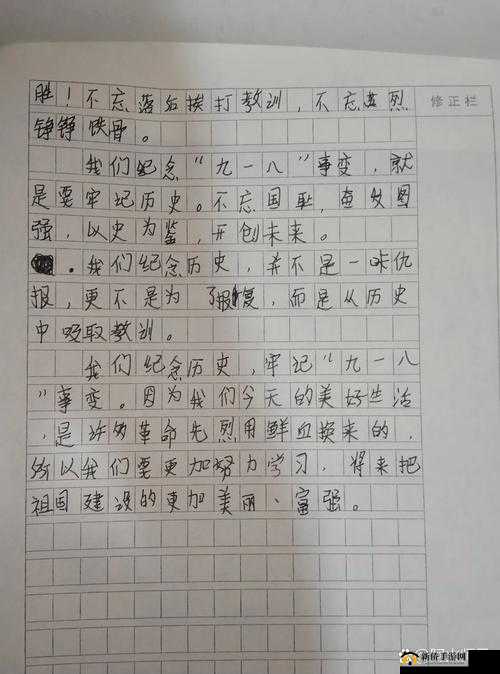 胜！不忘落后挨打教训，不忘英烈
铮铮铁骨。
我们纪念“九一八”事变，就
是要牢记历史。不忘国耻，奋发图
强，以史为鉴，开创未来。
．我们纪念历史，并不是一味仇
报，更不是为了报复，而是从历史
中吸取教训。
我们纪念历史，牢记“九一八
”事变。因为我们今天的美好生活
，是许多革命先烈用鲜血换来的，
所以我们要更加努力学习，将来把
祖国建设的更加美丽、富强。
修正栏
新侨手游网